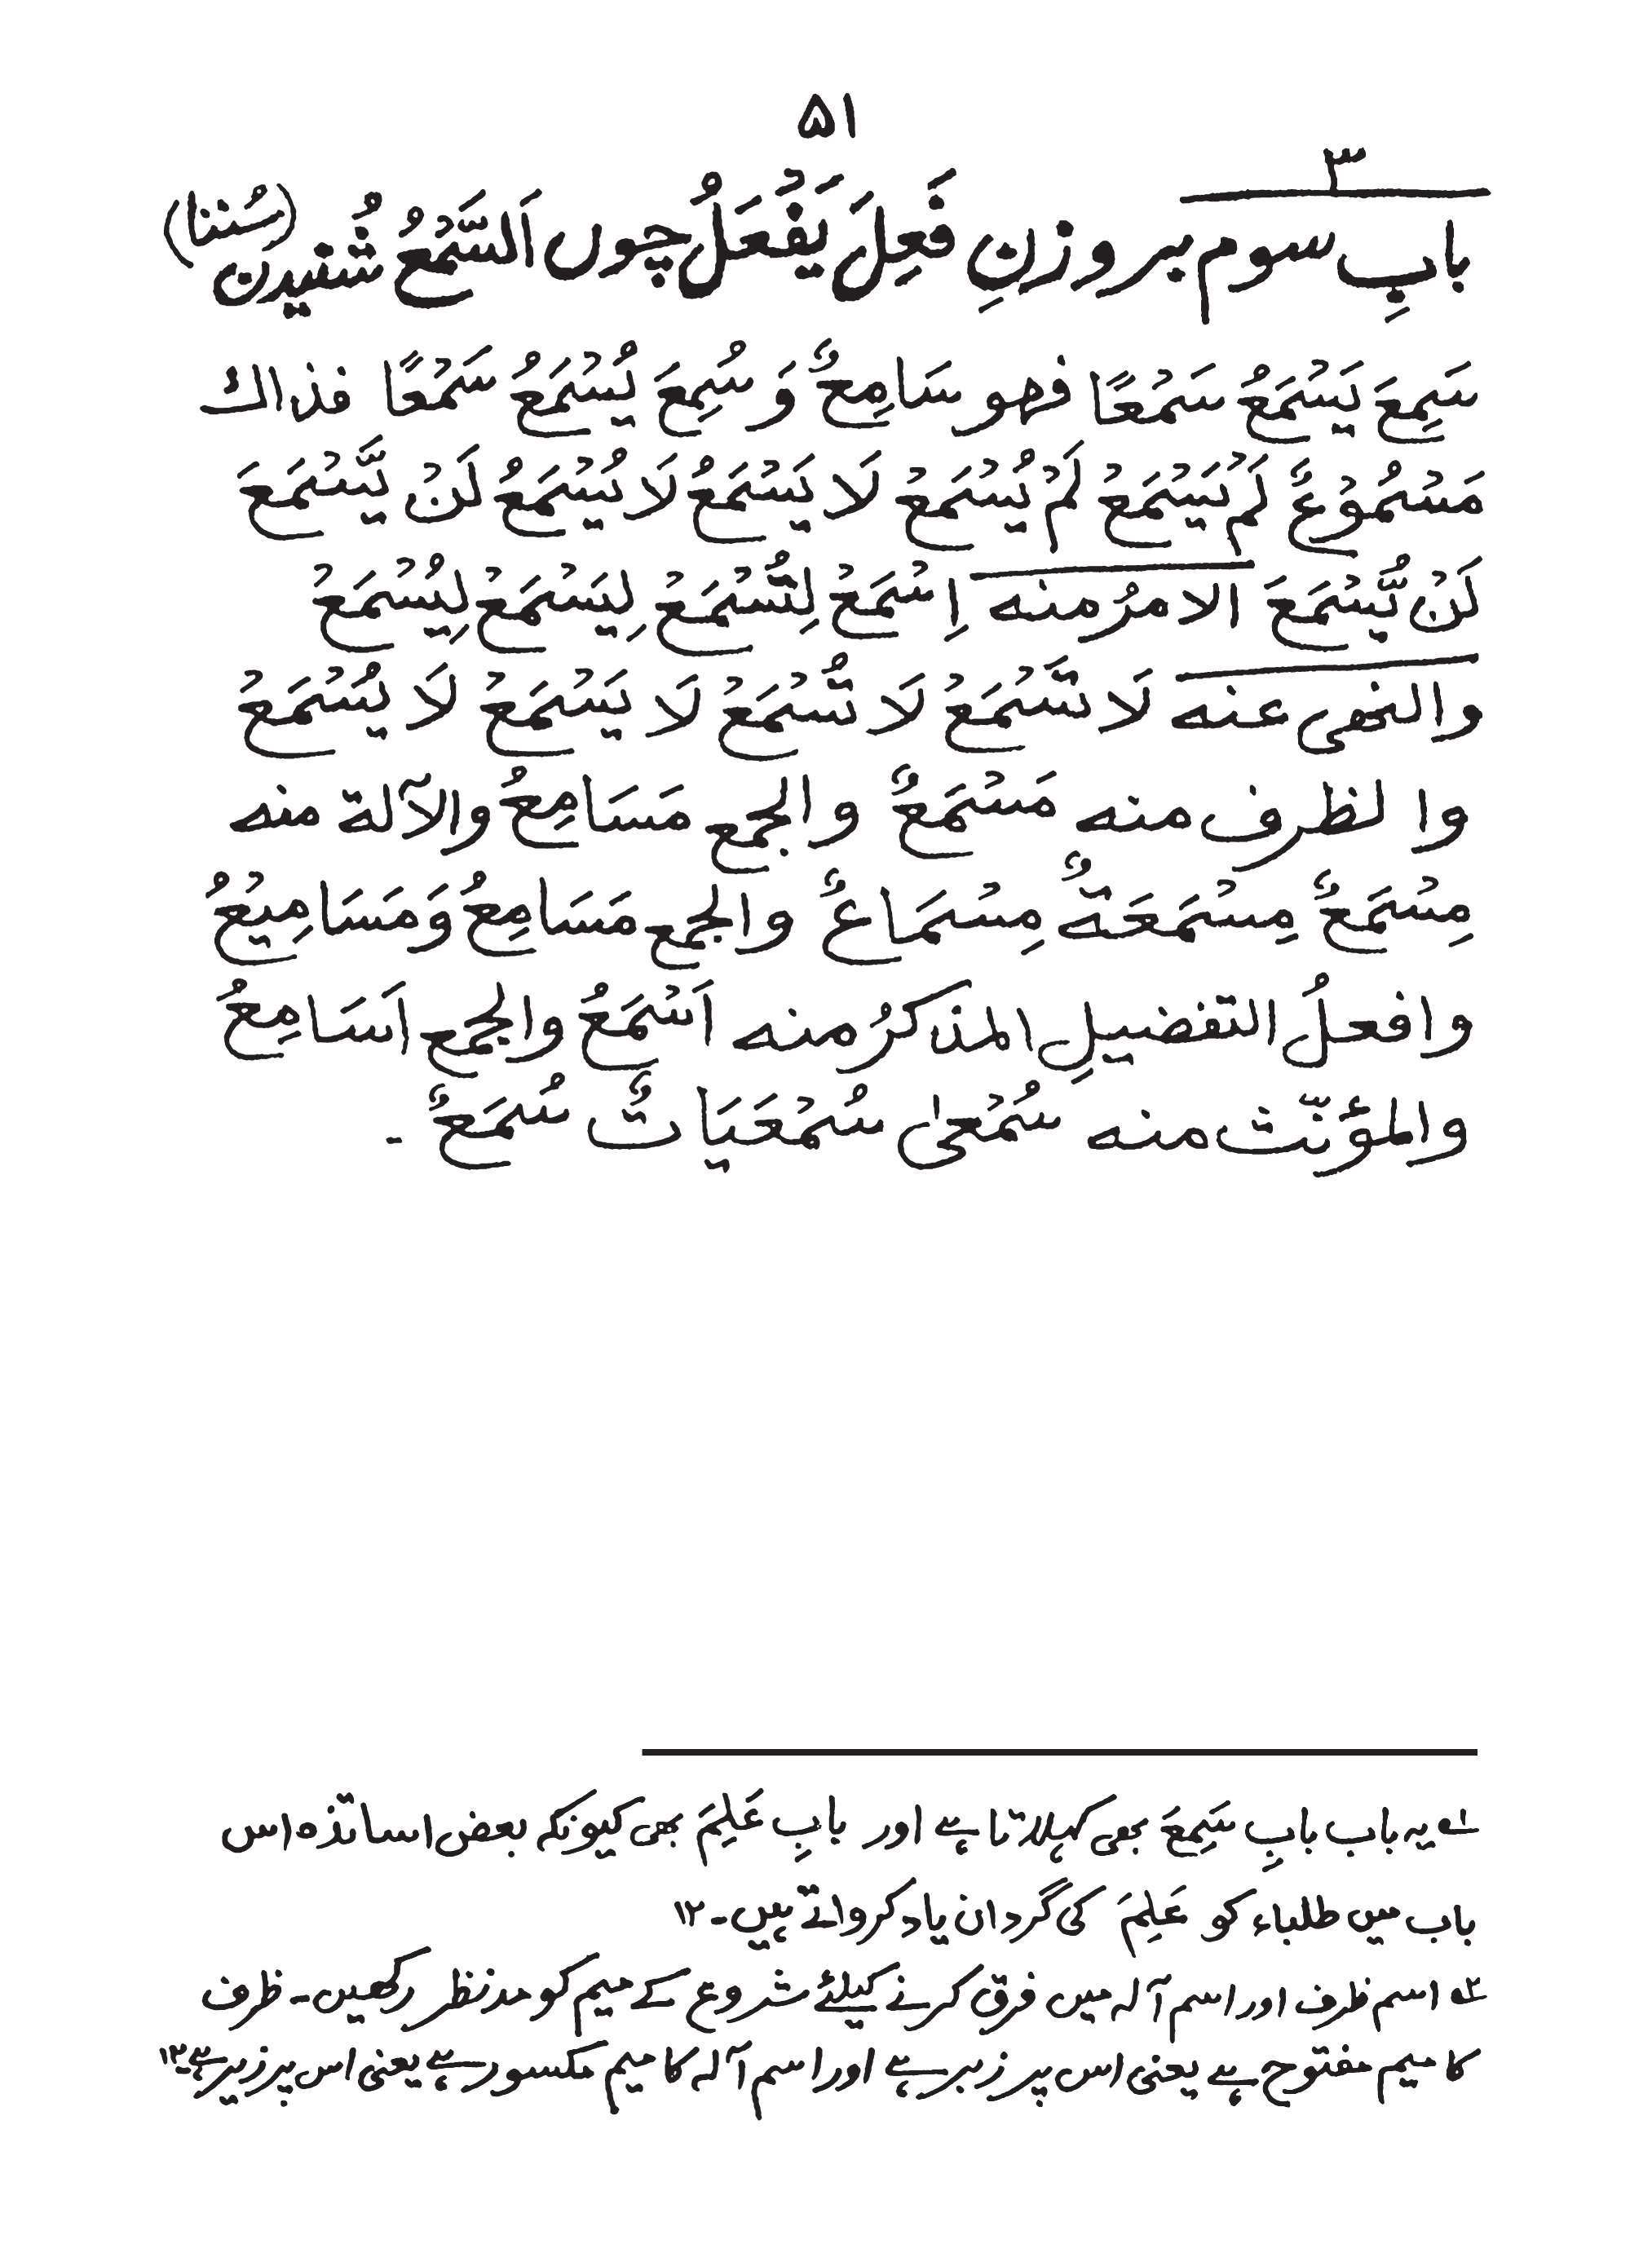 ۵۱
۳
بابِ سوم بروزنِ فَعِلَ یَفْعَلُ چوں اَلسَّمْعُ شُنیدن (سُننا)
سَمِعَ یَسْمَعُ سَمْعًا فهو سَامِعٌ وَ سُمِعَ یُسْمَعُ سَمْعًا فذاك
مَسْمُوْعٌ لَمْ یَسْمَعْ لَمْ یُسْمَعْ لَا یَسْمَعُ لَا یُسْمَعُ لَنْ یَّسْمَعَ
لَنْ یُّسْمَعَ الامرُ منه اِسْمَعْ لِتُسْمَعْ لِیَسْمَعْ لِیُسْمَعْ
والنهی عنه لَا تَسْمَعْ لَا تُسْمَعْ لَا یَسْمَعْ لَا یُسْمَعْ
والظرف منه مَسْمَعٌ والجمع مَسَامِعُ والآلة منه
مِسْمَعٌ مِسْمَعَةٌ مِسْمَاعٌ والجمع مَسَامِعُ وَمَسَامِیْعُ
وافعلُ التفضیلِ المذکرُ منه اَسْمَعُ والجمع اَسَامِعُ
والمؤنّث منه سُمْعٰی سُمْعَیَاتٌ سُمَعٌ ۔
؂۱ یہ باب بابِ سَمِعَ بھی کہلاتا ہے اور بابِ عَلِمَ بھی کیونکہ بعض اساتذہ اس
باب میں طلباء کو عَلِمَ کی گردان یاد کرواتے ہیں۔ ۱۲
؂۲ اسم ظرف اور اسم آلہ میں فرق کرنے کیلئے شروع کے میم کو مدنظر رکھیں۔ ظرف
کا میم مفتوح ہے یعنی اس پر زبر ہے اور اسم آلہ کا میم مکسور ہے یعنی اس پر زیر ہے۔۱۲